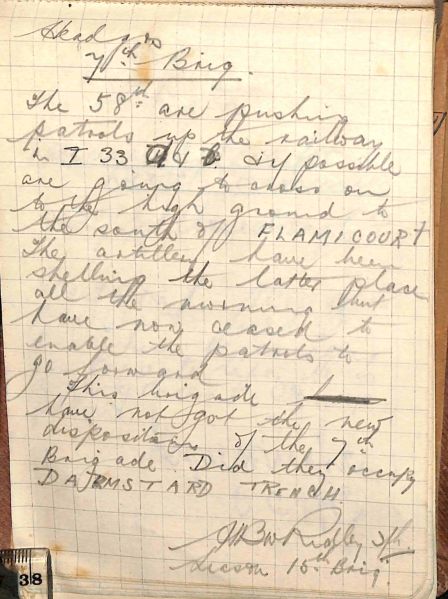 Head qrs
7th Brig.
The 58th are pushing
patrols up the railway
in I 33 & if possible
are going to cross on
to the high ground to
the south of FLAMICOURT
The artillery have been
shelling the latter place
all the morning but
have now ceased to
enable the patrols to
go forward
This brigade
have not got the new
disposition of the 7th
Brigade. Did they occupy
DARMSTARD TRENCH
Ridley
15th Brig.
38